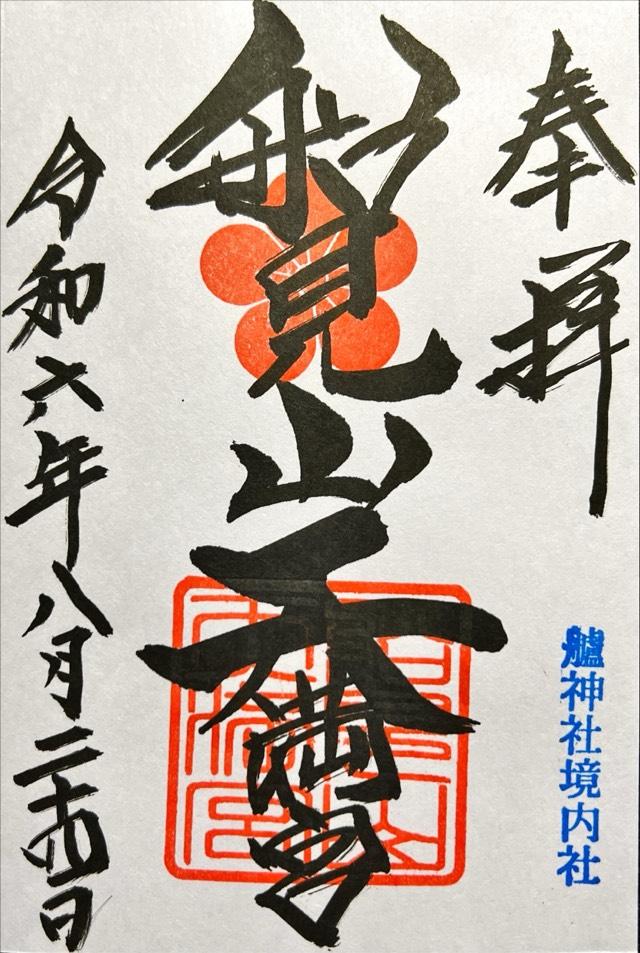 奉拝
艫神社境内社
船見山天満宮
令和六年八月二十四日